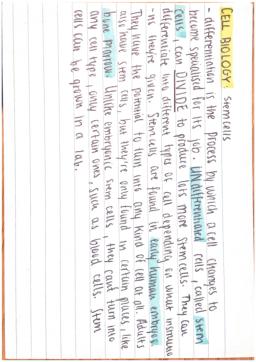 CELL BIOLOGY: stem cells
- differentiation is the process by which a cell changes to
become specialised for its job. UNdifferentiated cells, called stem
cells, can DIVIDE to produce lots more stem cells. They can
differentiate into different types of cell depending on what
-ns they're given. Stem cells are found in early human embryos
They have the potential to turn into any kind of cell at all. Adults
also have stem cells, but they're only found in certain places, like
bone marrow. Unlike embryonic stem cells, they can't turn into
any cell type, only certain ones, such as blood cells. Stem
cells can be grown in a lab.